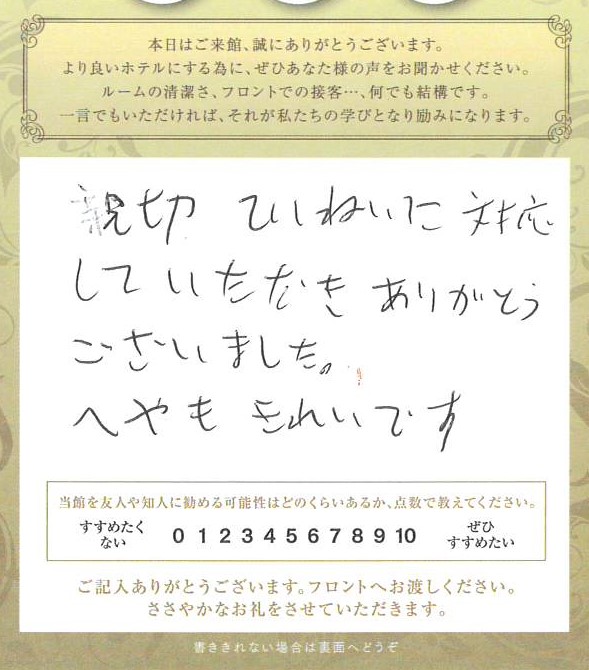 本日はご来館、誠にありがとうございます。
より良いホテルにする為に、ぜひあなた様の声をお聞かせください。
ルームの清潔さ、フロントでの接客…、何でも結構です。
一言でもいただければ、それが私たちの学びとなり励みになります。
親切 ていねいに 対応
していただき ありがとう
ございました。
へやも きれいです
当館を友人や知人に勧める可能性はどのくらいあるか、点数で教えてください。
すすめたくない 0 1 2 3 4 5 6 7 8 9 10 ぜひすすめたい
ご記入ありがとうございます。フロントへお渡しください。
ささやかなお礼をさせていただきます。
書ききれない場合は裏面へどうぞ